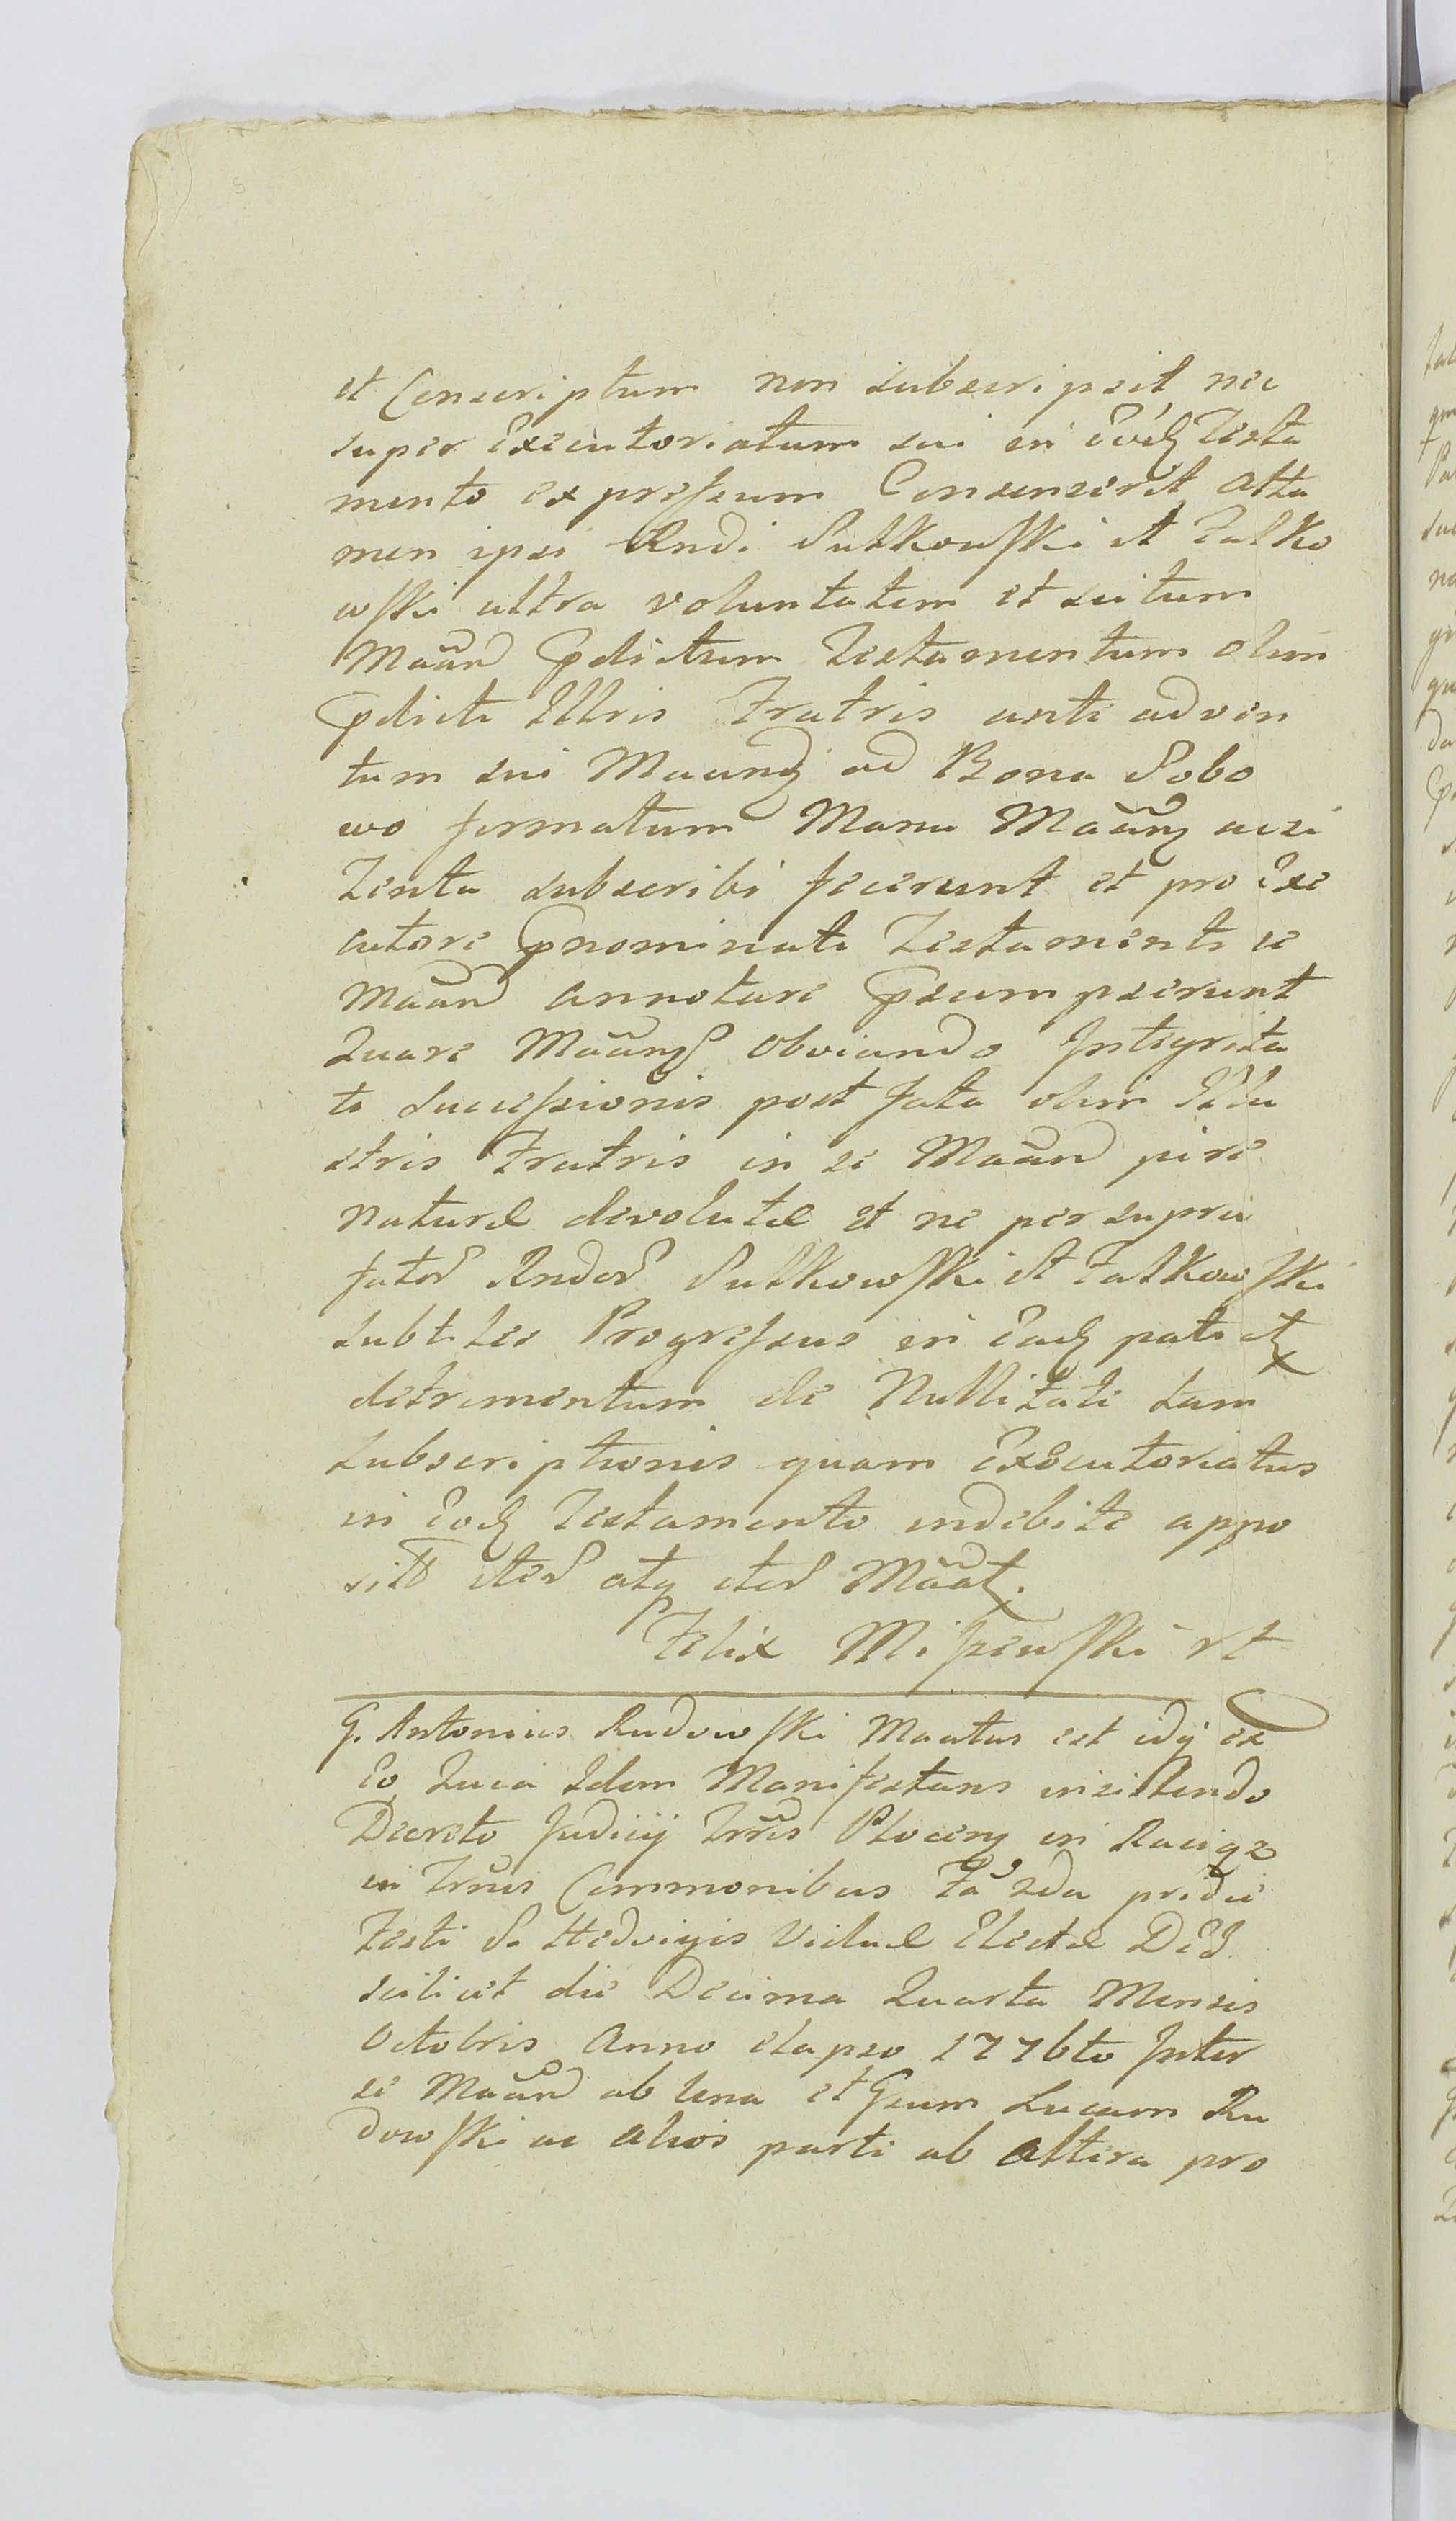 et Conscriptum non subscripsit nec
super Executoriatum sui in Eodz Testa
mento expressum Consenserit atta
men ipsi Rndi Sutkowski et Falko
wski ultra voluntatem et scitum
Maãn pdictum Testamentum olim
pdicti Illris Fratris ante adven
tum sui Maanz ad Bona Sobo
wo formatum Manu Maãnz acsi
Tenta subscribi fecerunt et pro Exe
cutore pnominati Testamenti se
Maãn annotare psumpserunt
Quare Maãns obviando Integrita
ti Successionis post fata olim Illu
stris Fratris in se Maãn jure
naturæ devolutæ et ne per supra
fatos Rndos Sutkowski et Falkowski
subtiles Progressus in Eadz patiatr
detrimentum de Nullitate tam
Subscriptionis quam Executoriatus
in Eodz Testamento indebite appo
sitt iter atq iter Mãat.
Felix Miszewski rt
G. Antonius Rudowski Maatus est idq ex
Eo Quia Idem Manifestans insistendo
Decreto Judicij Trris Plocen in Raciqz
in Trnis Commonibus Fã 2da pridie
Festi S. Hedvigis Viduæ Electæ Dei
scilicet die Decima Quarta Mensis
Octobris Anno elapso 1776to Inter
se Maãn ab una et Gsum Lucam Ru
dowski ac alios parti ab altera pro